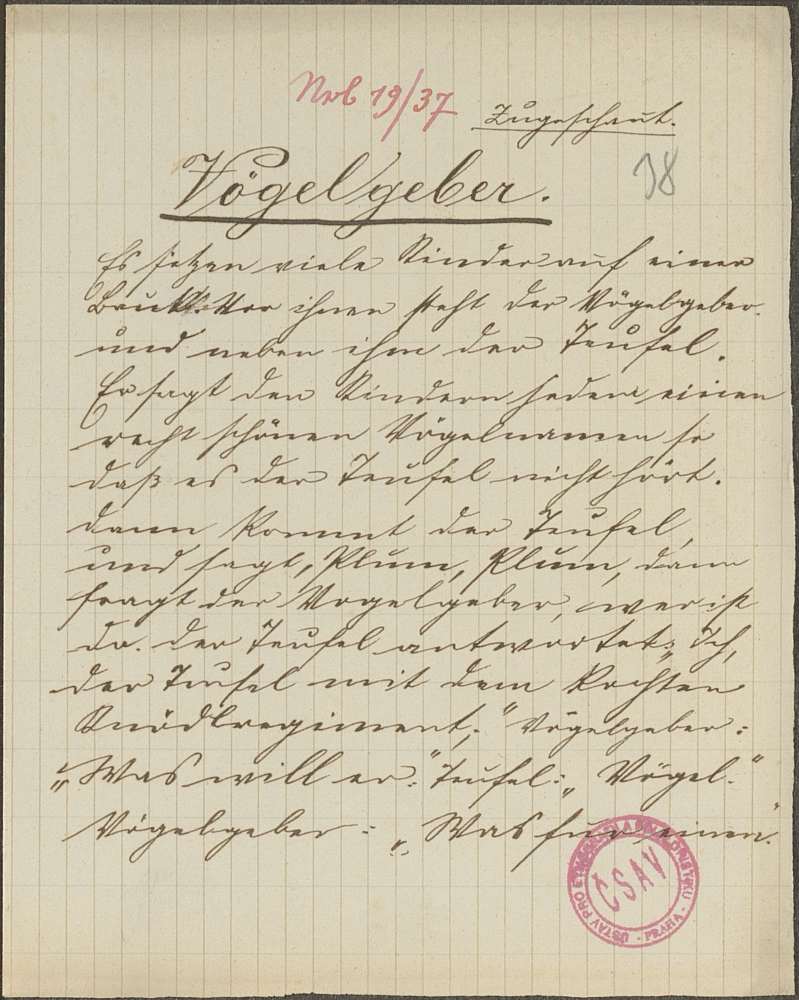 Nrb 19/37
Zugeschaut.
38
Vögelgeber.
Es sitzen viele Kinder auf einer
Bank. Vor ihnen steht der Vögelgeber.
und neben ihm der Teufel.
Er sagt den Kindern jedem einen
recht schönen Vögelnamen so
daß es der Teufel nicht hört.
dann kommt der Teufel,
und sagt, Plum, Plum, dann
fragt der Vogelgeber, wer ist
da. der Teufel antwortet: „Ich,
der Teufel mit dem
Knödlregiment;" Vögelgeber:
„Was will er:" Teufel: „Vögel."
Vögelgeber: „Was für einen".
ÚSTAV PRO ETNOGRAFII A FOLKLORISTIKU
ČSAV
PRAHA